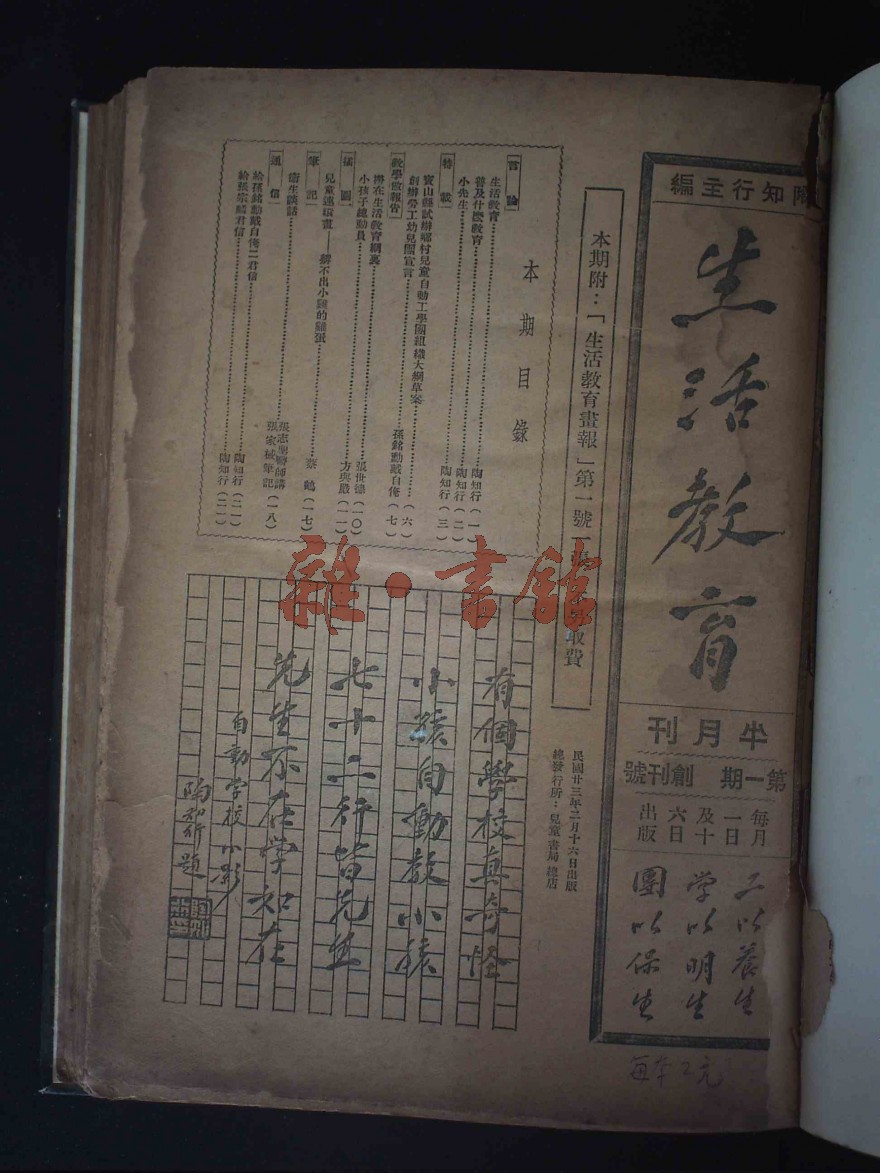 陶知行主編
生活教育
半月刊
第一期 創刊號
每月
一日
及十
六日
出版
工以養生
学以明生
團以保生
每本2元
本期附：「生活教育畫報」第一號一張
取費
民國廿三年二月十六日出版
總發行所：兒童書局總店
本期目錄
[言論]
生活教育……陶知行(一)
普及什麼教育……陶知行(二)
小先生……陶知行(三)
[特載]
寶山縣試辦鄉村兒童自動工學團組織大綱草案
創辦勞工幼兒團宣言……(六)
[教學做報告]……孫銘勳戴自俺(七)
撒在生活教育網裏……張世德(一〇)
小孩子總動員……方與嚴(一一)
[插圖]
兒童連環畫——孵不出小雞的雞蛋……蔡鶴(一七)
[筆記]
衛生談話……張志聖醫師講
張家械筆記(一八)
[通信]
給孫銘勳戴自俺二君信……陶知行(二一)
給張宗麟君信……陶知行(二一)
有個學校真奇怪
小孩自動教小孩
七十二行皆先生
先生不在学如在
自動学校小影
陶知行題
雜·書館